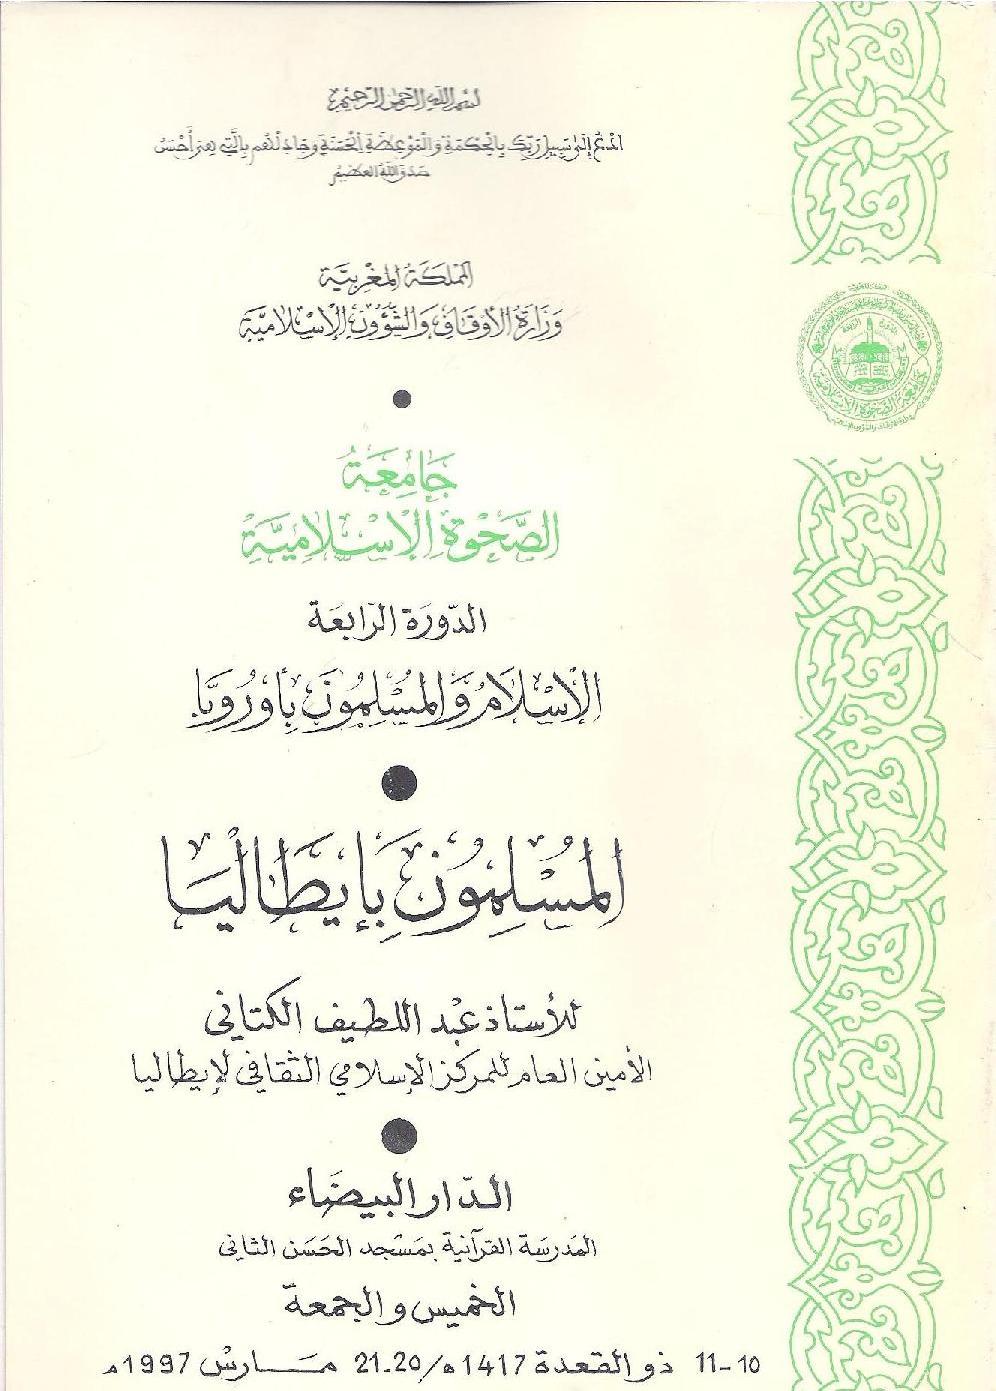 بسم الله الرحمن الرحيم
ادع إلى سبيل ربك بالحكمة والموعظة الحسنة وجادلهم بالتي هي أحسن
صدق الله العظيم
المملكة المغربية
وزارة الأوقاف والشؤون الإسلامية
جامعة
الصحوة الإسلامية
الدورة الرابعة
الإسلام والمسلمون بأوروبا
المسلمون بإيطاليا
للأستاذ عبد اللطيف الكتاني
الأمين العام للمركز الإسلامي الثقافي لإيطاليا
الدار البيضاء
المدرسة القرآنية بمسجد الحسن الثاني
الخميس والجمعة
10-11 ذو القعدة 1417ه/20.21 مارس 1997م
جامعة الصحوة الإسلامية